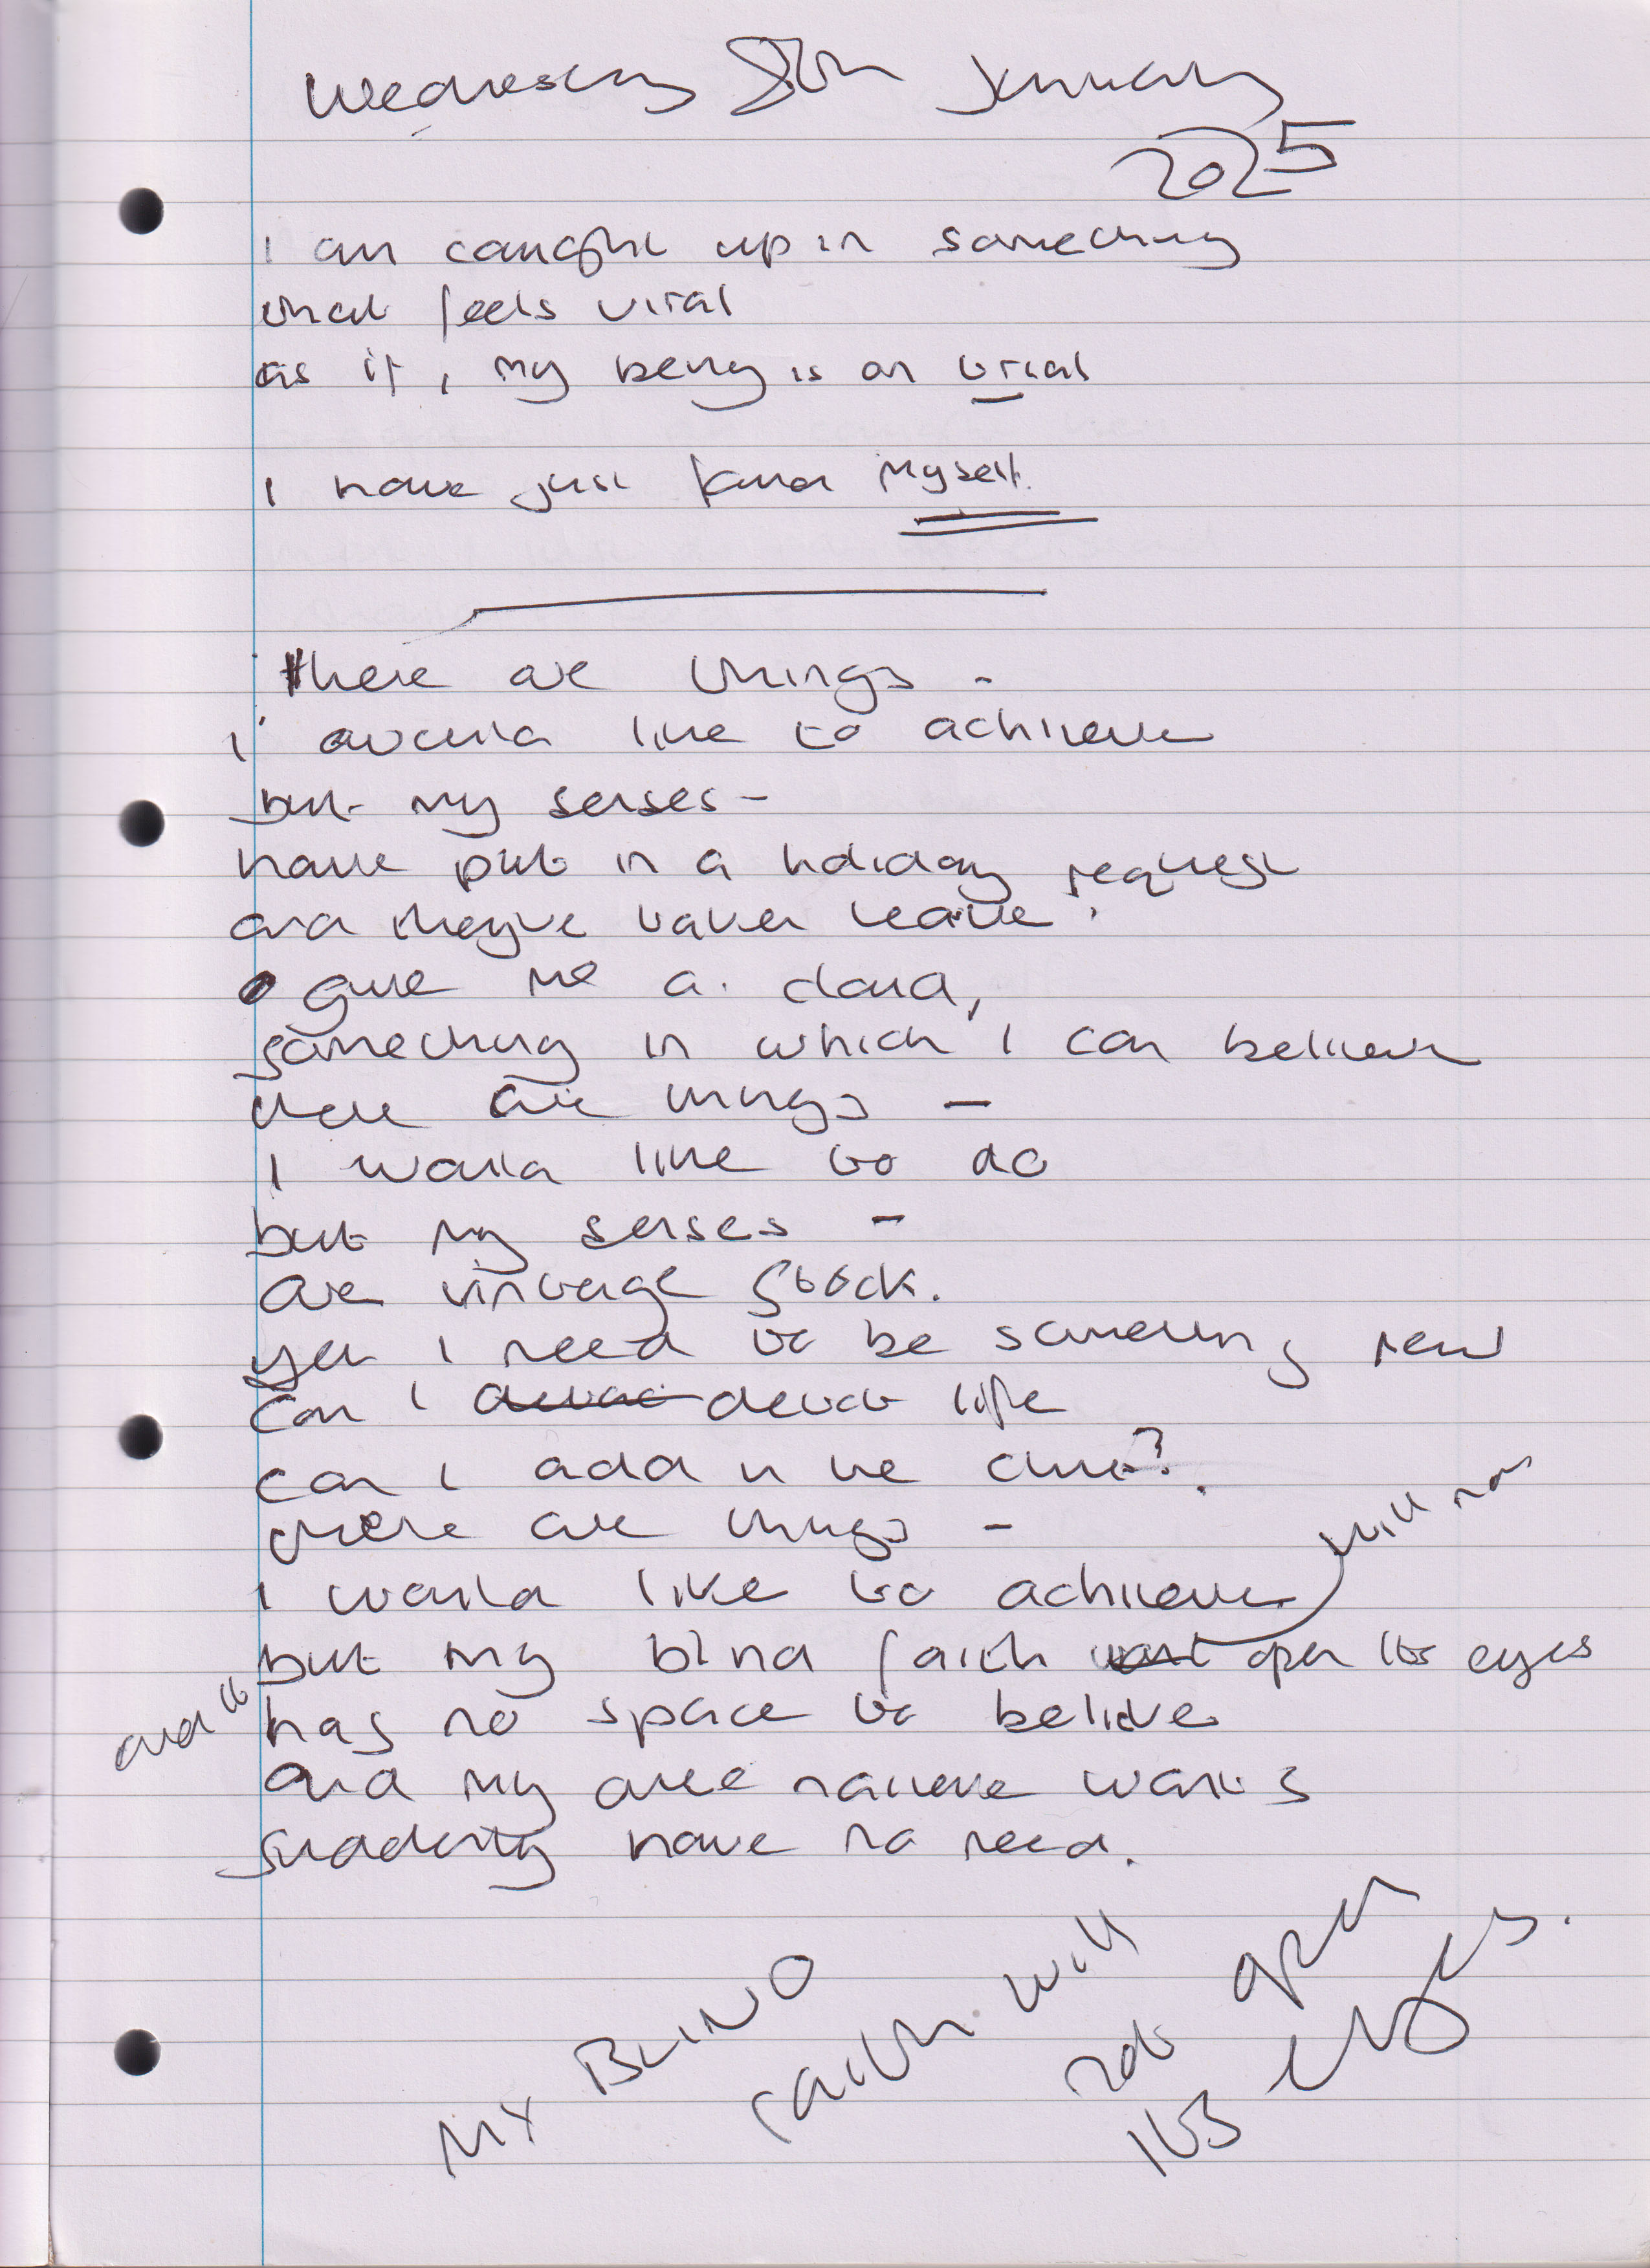 Wednesday 8th January
2025
I am caught up in something
that feels viral
as if, my being is on trial
I have just found myself.
there are things -
I would like to achieve
but my senses -
have put in a holiday request
and they've taken leave.
give me a cloud,
something in which I can believe
there are things -
I would like to do
but my senses -
are vintage stock.
yet I need to be something new
can I
life
can I add
there are things -
I would like to achieve
will not
but my blind faith open its eyes
and it has no space to believe
and my once naive wants
suddenly have no need.
MY BLIND
faith will
not open
its eyes.